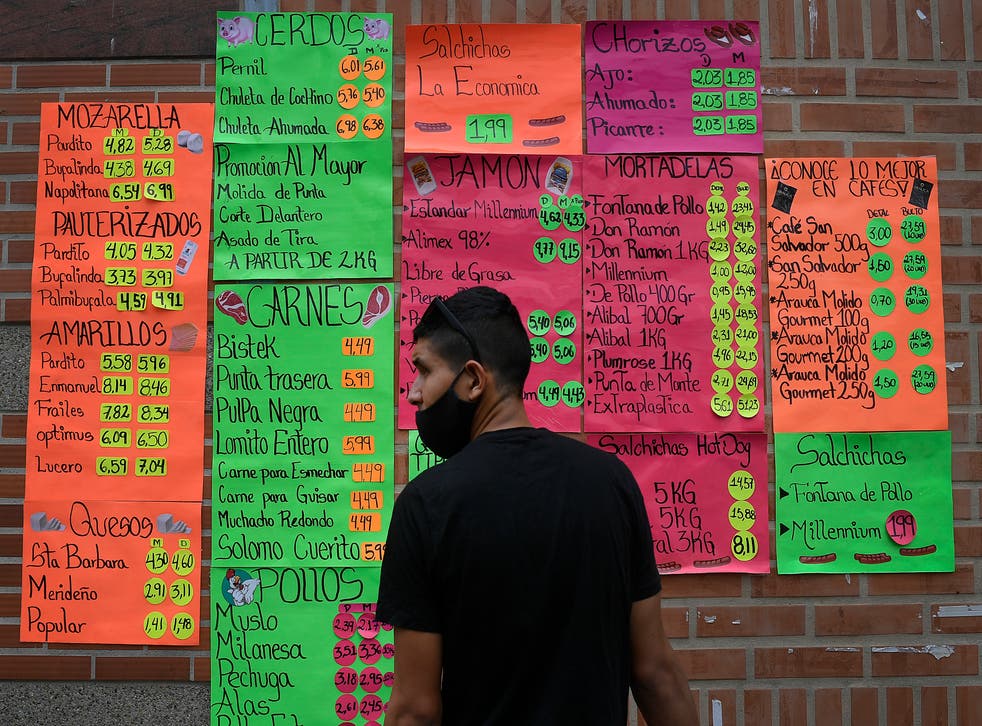 MOZARELLA
M D
Pardito 4,82 5,28
Bufalinda 4,38 4,69
Napolitana 6,54 6,99
PAUTERIZADOS
Pardito 4,05 4,32
Bufalinda 3,73 3,97
Palmibufala 4,59 4,91
AMARILLOS
Pardito 5,58 5,96
Enmanuel 8,14 8,46
Frailes 7,82 8,34
optimus 6,09 6,50
Lucero 6,59 7,04
Quesos
M D
Sta Barbara 4,30 4,60
Merideño 2,91 3,11
Popular 1,41 1,48
CERDOS
D M
Pernil 6,01 5,61
Chuleta de Cochino 5,76 5,40
Chuleta Ahumada 6,78 6,38
Promoción Al Mayor
Molida de Punta
Corte Delantero
Asado de Tira
A PARTIR DE 2KG
CARNES
Bistek 4,49
Punta trasera 5,99
Pulpa Negra 4,49
Lomito Entero 5,99
Carne para Esmechar 4,49
Carne para Guisar 4,49
Muchacho Redondo 4,49
Solomo Cuerito 5,99
POLLOS
D M
Muslo 2,39 2,17
Milanesa 3,51 3,36
Pechuga 3,18 2,95
Alas 2,61
Salchichas
La Economica
1,99
JAMÓN
D M
Estandar Millennium 4,62 4,33
Alimex 98% 9,77 9,15
Libre de Grasa
5,40 5,06
5,40 5,06
4,49 4,43
CHorizos
D M
Ajo: 2,03 1,85
Ahumado: 2,03 1,85
Picante: 2,03 1,85
MORTADELAS
Detal Bulto
Fontana de Pollo 1,42 23,41
Don Ramón 1,49 29,45
Don Ramón 1KG 2,23 23,62
Millennium 1,00 12,00
De Pollo 400Gr 0,95 13,58
Alibal 700Gr 1,45 18,53
Alibal 1KG 2,31 21,00
Plumrose 1KG 1,96 22,15
Punta de Monte 2,71 29,69
Extraplastica 5,61 51,23
Salchichas HotDog
5KG 14,57
5KG 15,88
3KG 8,11
¡CONOCE LO MEJOR
EN CAFES!
DETAL BULTO
Café San
Salvador 500g 3,00 27,59
San Salvador
250g 1,50 27,59
Arauca Molido
Gourmet 100g 0,70 19,31
Arauca Molido
Gourmet 200g 1,20 16,55
Arauca Molido
Gourmet 250g 1,50 27,59
Salchichas
Fontana de Pollo
Millennium 1,99